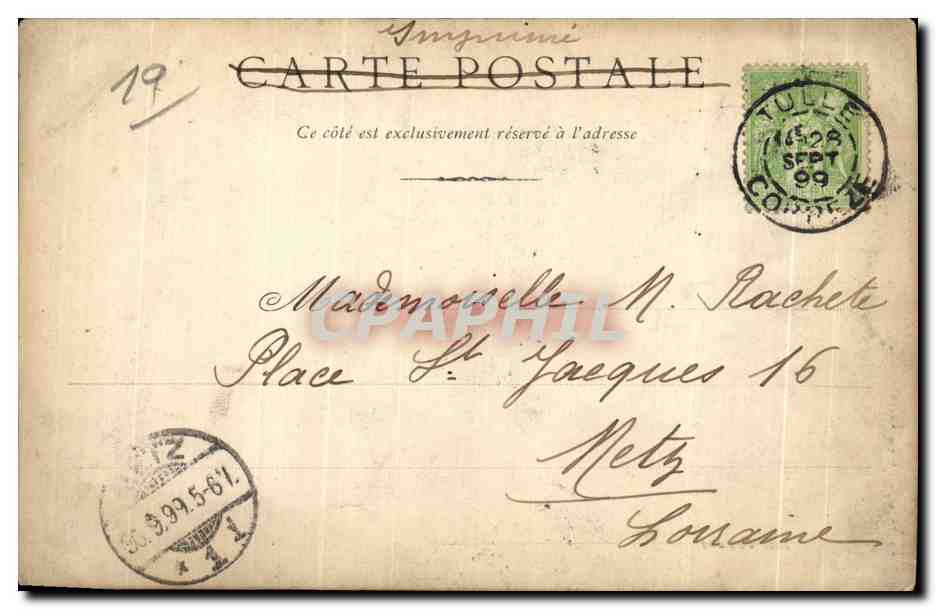 Imprimé
CARTE POSTALE
19
Ce côté est exclusivement réservé à l'adresse
TULLE
28
SEPT
99
CORREZE
Mademoiselle M. Rachete
CPAPHIL
Place St Jacques 16
Metz
Lorraine
METZ
30.9.99.5-6V.
* 1 1